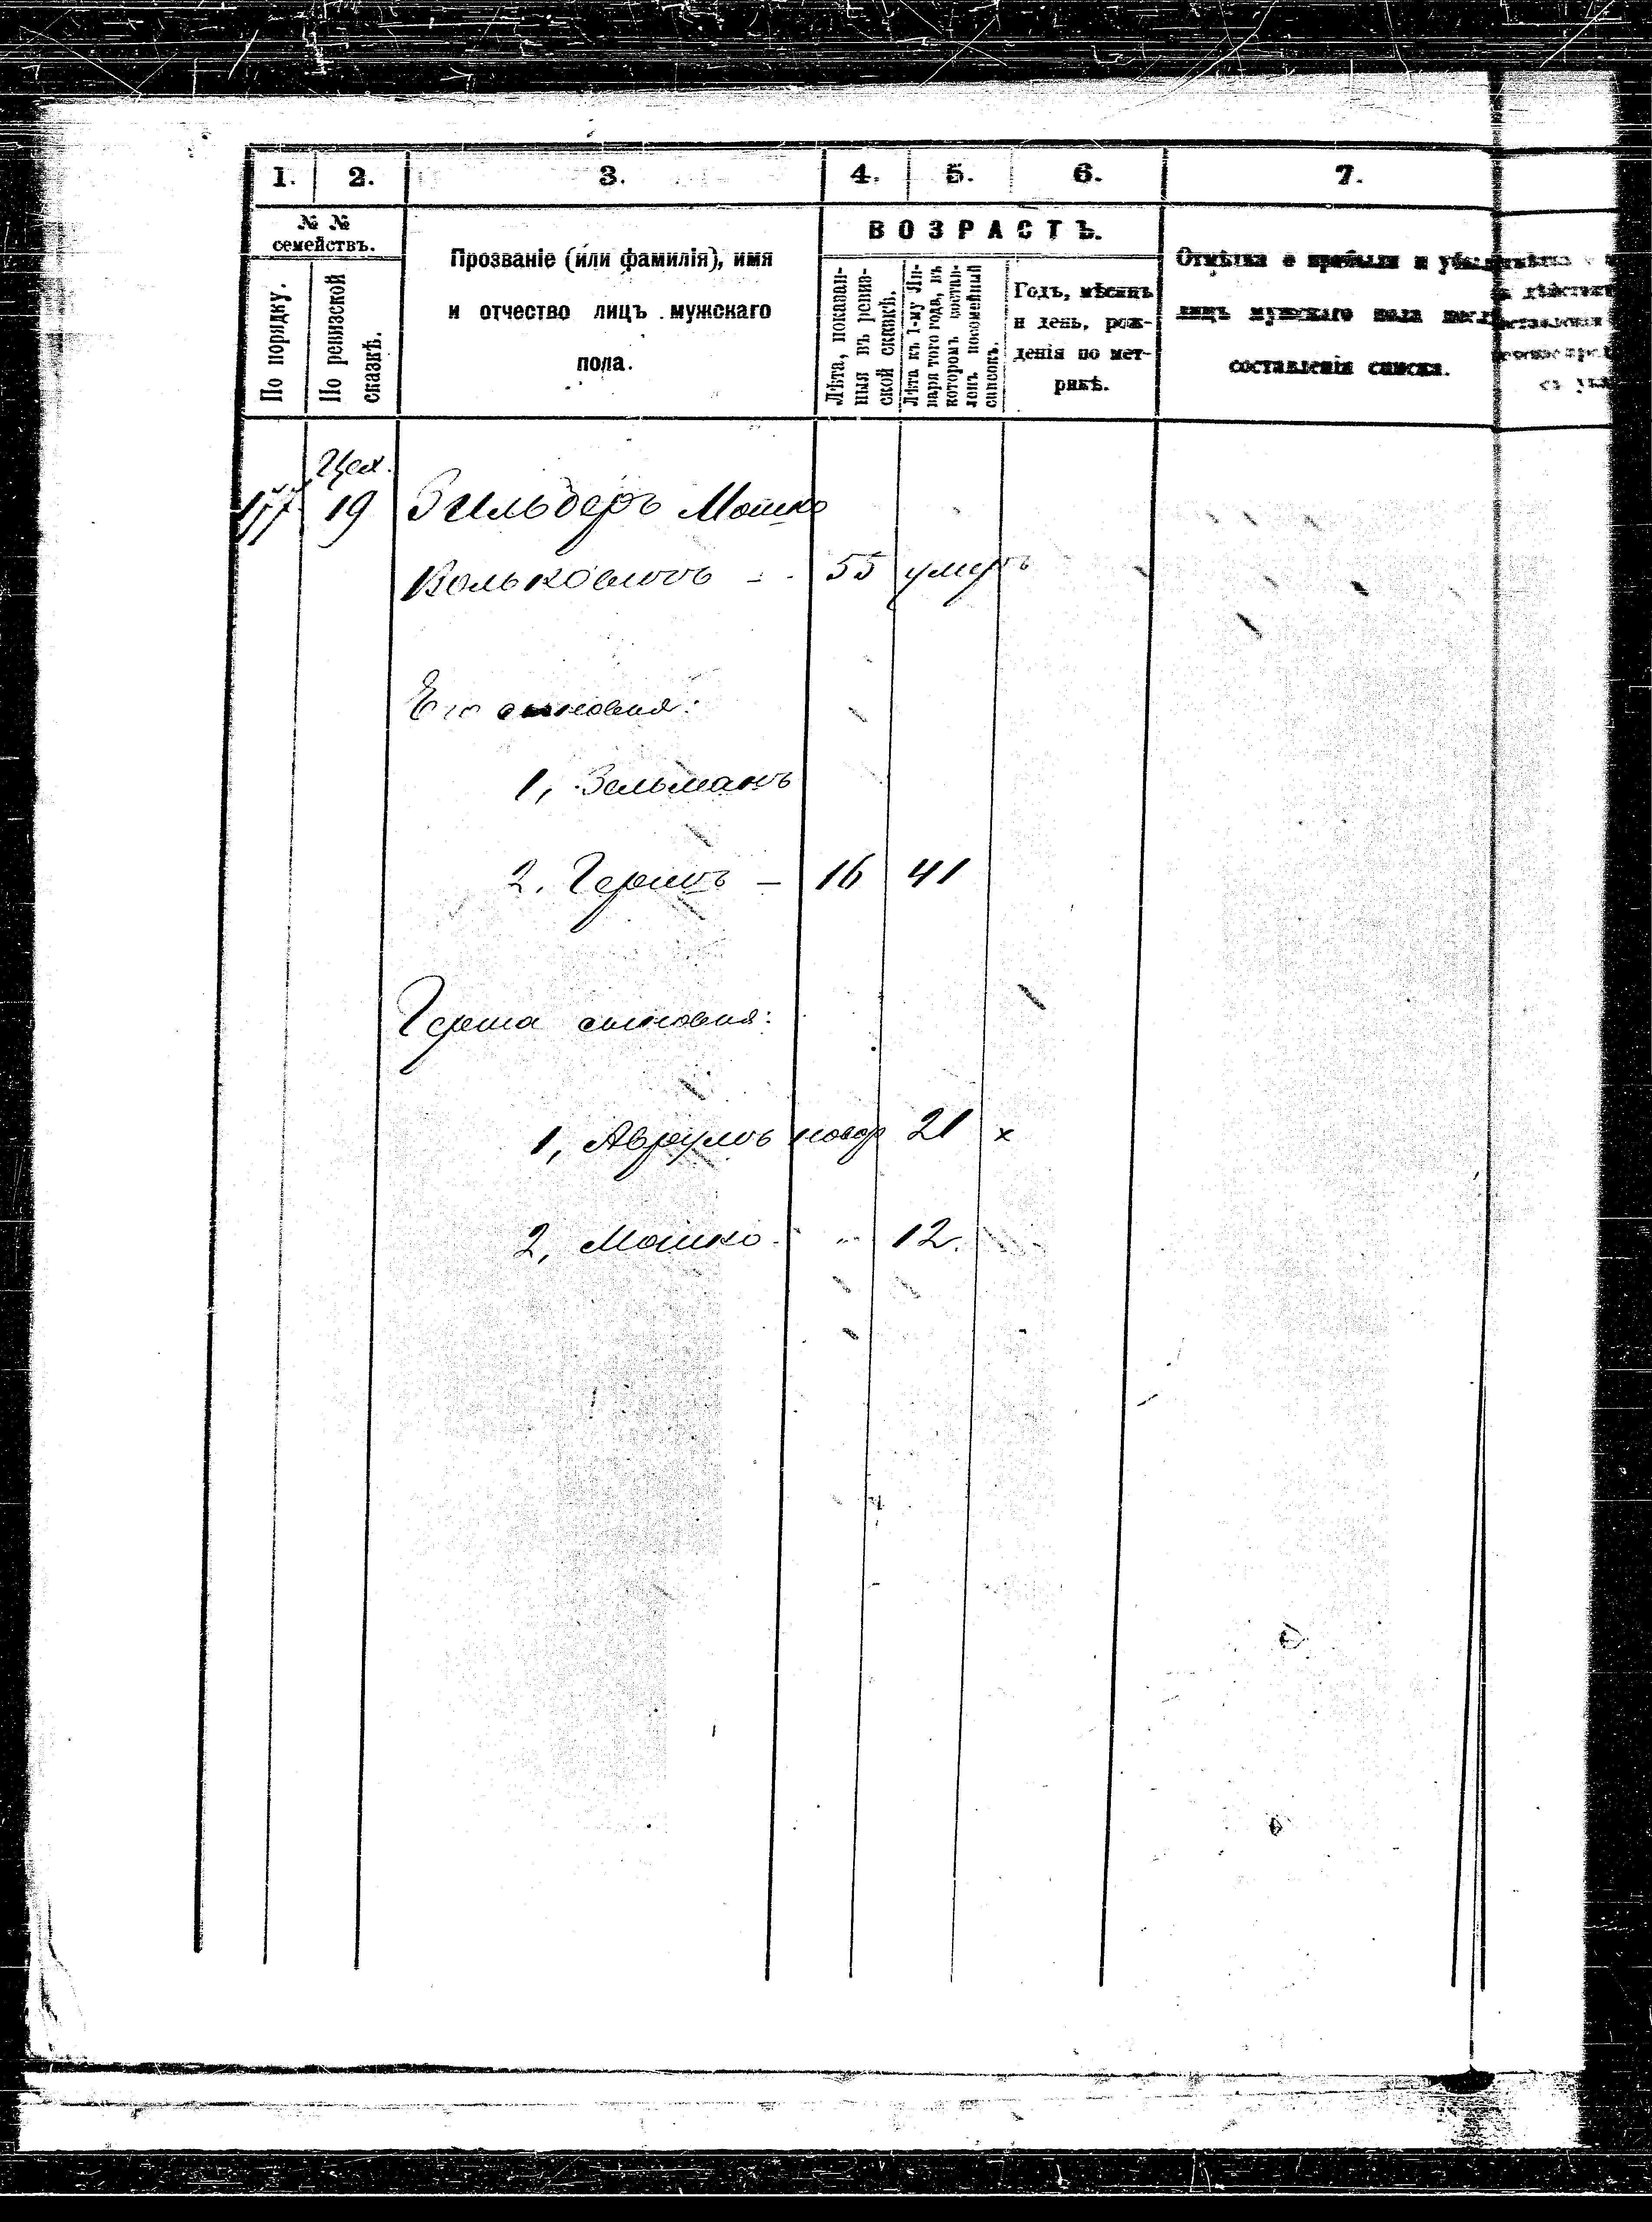 1. 2. 3. 4. 5. 6. 7.
№ №
семействъ.
По порядку.
По ревизской
сказкѣ.
Прозваніе (или фамилія), имя
и отчество лицъ мужскаго
пола.
ВОЗРАСТЪ.
Лѣта, показан-
ныя въ ревиз-
ской сказкѣ.
Лѣта къ 1-му Ян-
варя того года, въ
которомъ состав-
ленъ посемейный
списокъ.
Годъ, мѣсяцъ
и день, рож-
денія по мет-
рикѣ.
Отмѣтка о прибыли и убыли
лицъ мужскаго пола послѣ
составленія списка.
Цех.
177 19 Зильберъ Мошко
Вольковичъ - 55 умеръ
Его сыновья:
1, Зельманъ
2. Гершъ — 16 41
Герша сыновья:
1, Аврумъ новор 21 x
2, Мошко - „ 12.